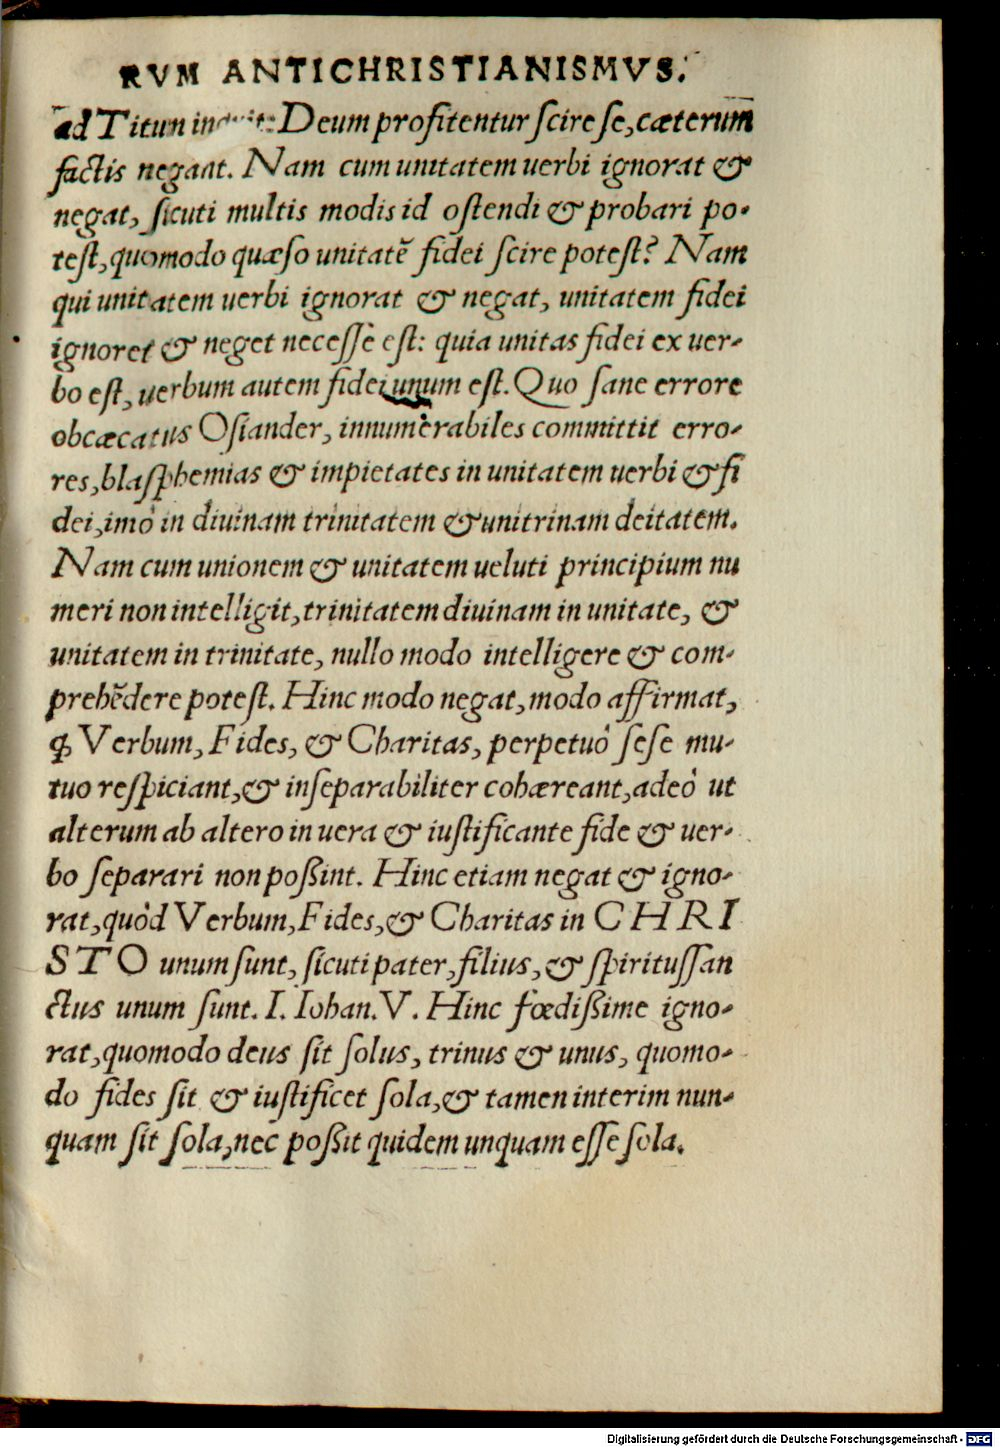 RVM ANTICHRISTIANISMVS.
ad Titum inquit: Deum profitentur scire se, cæterum
factis negant. Nam cum unitatem uerbi ignorat &
negat, sicuti multis modis id ostendi & probari po-
test, quomodo quæso unitatẽ fidei scire potest? Nam
qui unitatem uerbi ignorat & negat, unitatem fidei
ignoret & neget necesse est: quia unitas fidei ex uer-
bo est, uerbum autem fidei unum est. Quo sane errore
obcæcatus Osiander, innumerabiles committit erro-
res, blasphemias & impietates in unitatem uerbi & fi
dei, imò in diuinam trinitatem & unitrinam deitatem.
Nam cum unionem & unitatem ueluti principium nu
meri non intelligit, trinitatem diuinam in unitate, &
unitatem in trinitate, nullo modo intelligere & com-
prehẽdere potest. Hinc modo negat, modo affirmat,
ꝙ Verbum, Fides, & Charitas, perpetuò sese mu-
tuo respiciant, & inseparabiliter cohæreant, adeò ut
alterum ab altero in uera & iustificante fide & uer-
bo separari non poßint. Hinc etiam negat & igno-
rat, quòd Verbum, Fides, & Charitas in CHRI
STO unum sunt, sicuti pater, filius, & spiritussan
ctus unum sunt. I. Iohan. V. Hinc fœdißime igno-
rat, quomodo deus sit solus, trinus & unus, quomo-
do fides sit & iustificet sola, & tamen interim nun-
quam sit sola, nec poßit quidem unquam esse sola.
Digitalisierung gefördert durch die Deutsche Forschungsgemeinschaft - DFG